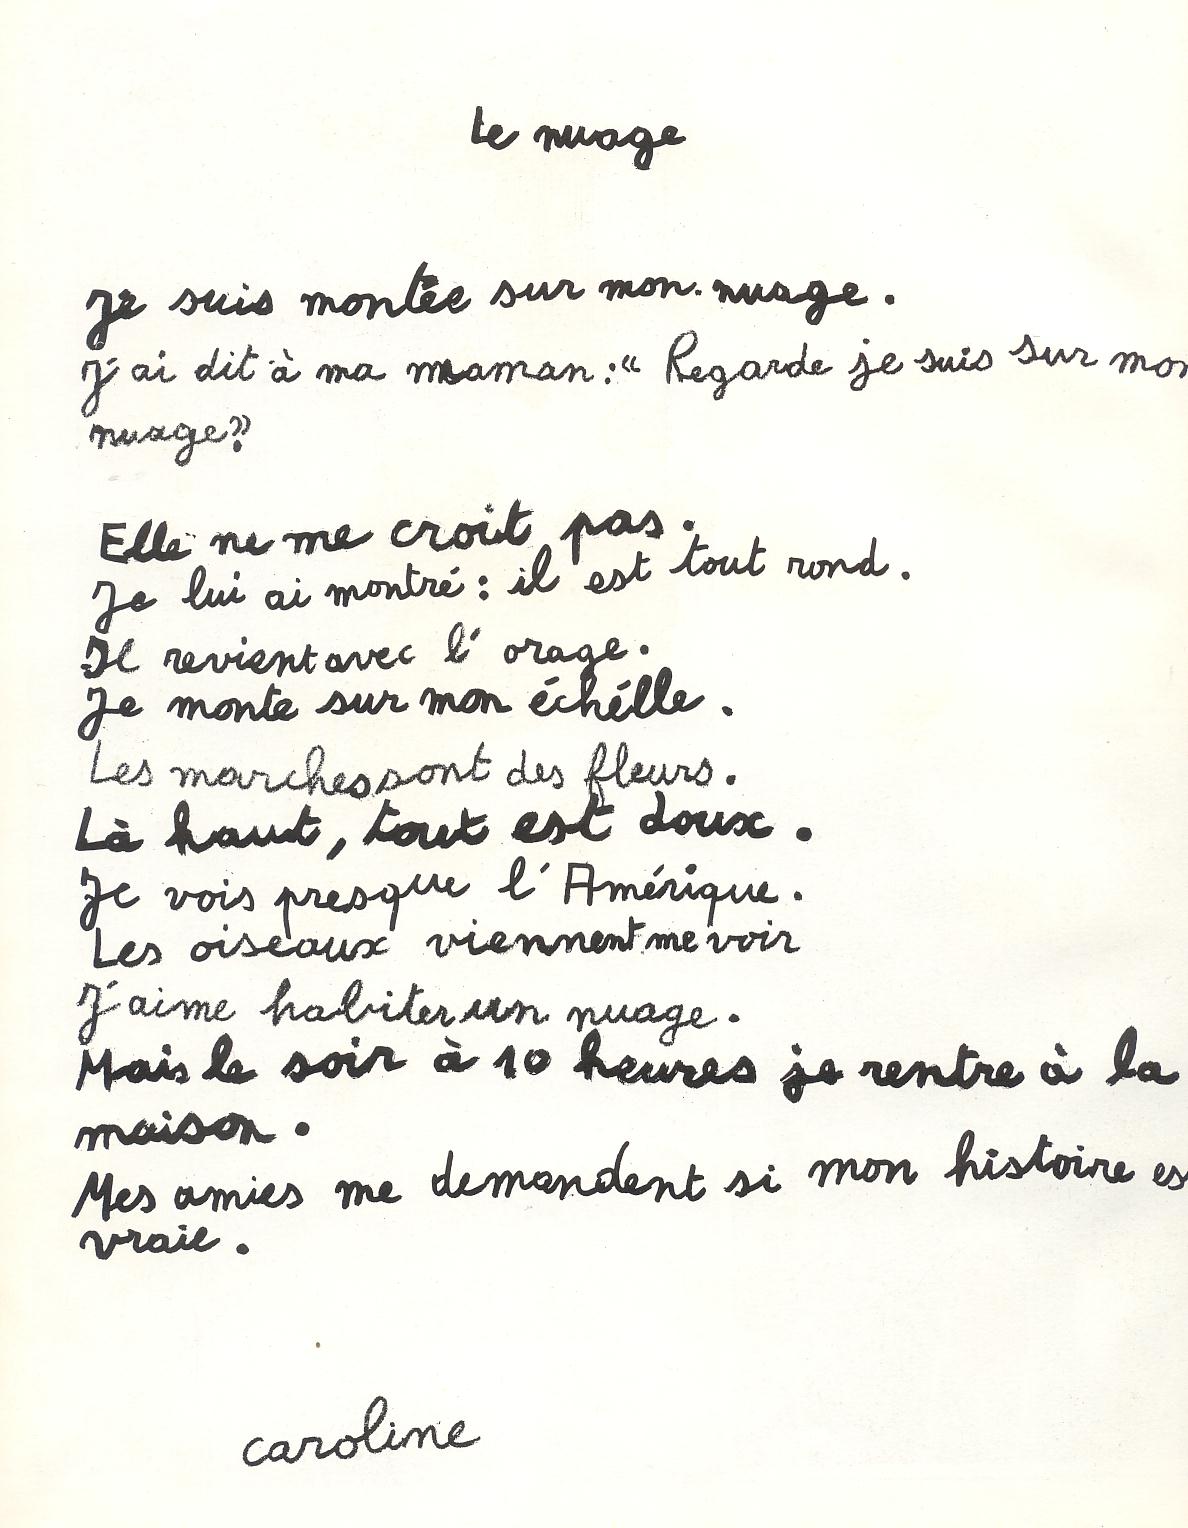 Le nuage
Je suis montée sur mon nuage.
J'ai dit à ma maman : « Regarde je suis sur mon
nuage ? »
Elle ne me croit pas.
Je lui ai montré : il est tout rond.
Il revient avec l'orage.
Je monte sur mon échélle.
Les marches sont des fleurs.
Là haut, tout est doux.
Je vois presque l'Amérique.
Les oiseaux viennent me voir
J'aime habiter un nuage.
Mais le soir à 10 heures je rentre à la
maison.
Mes amies me demandent si mon histoire es
vraie.
caroline